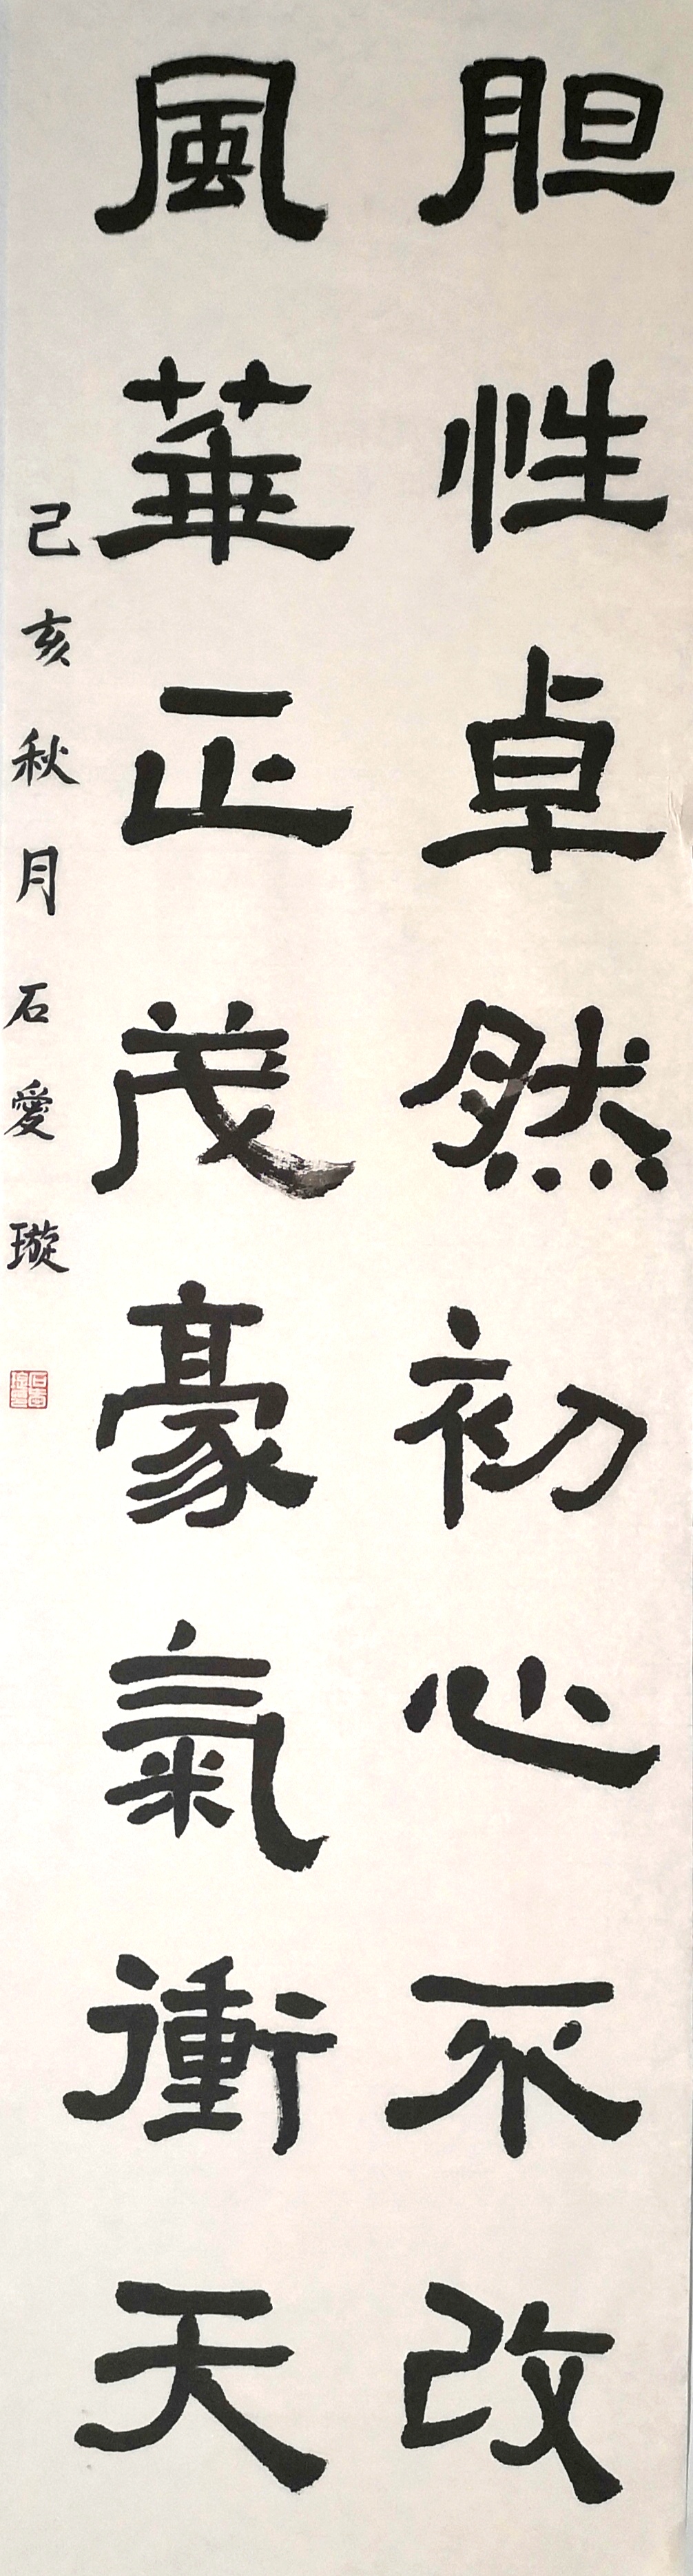 胆性卓然初心不改
風華正茂豪氣衝天
己亥秋月石愛璇